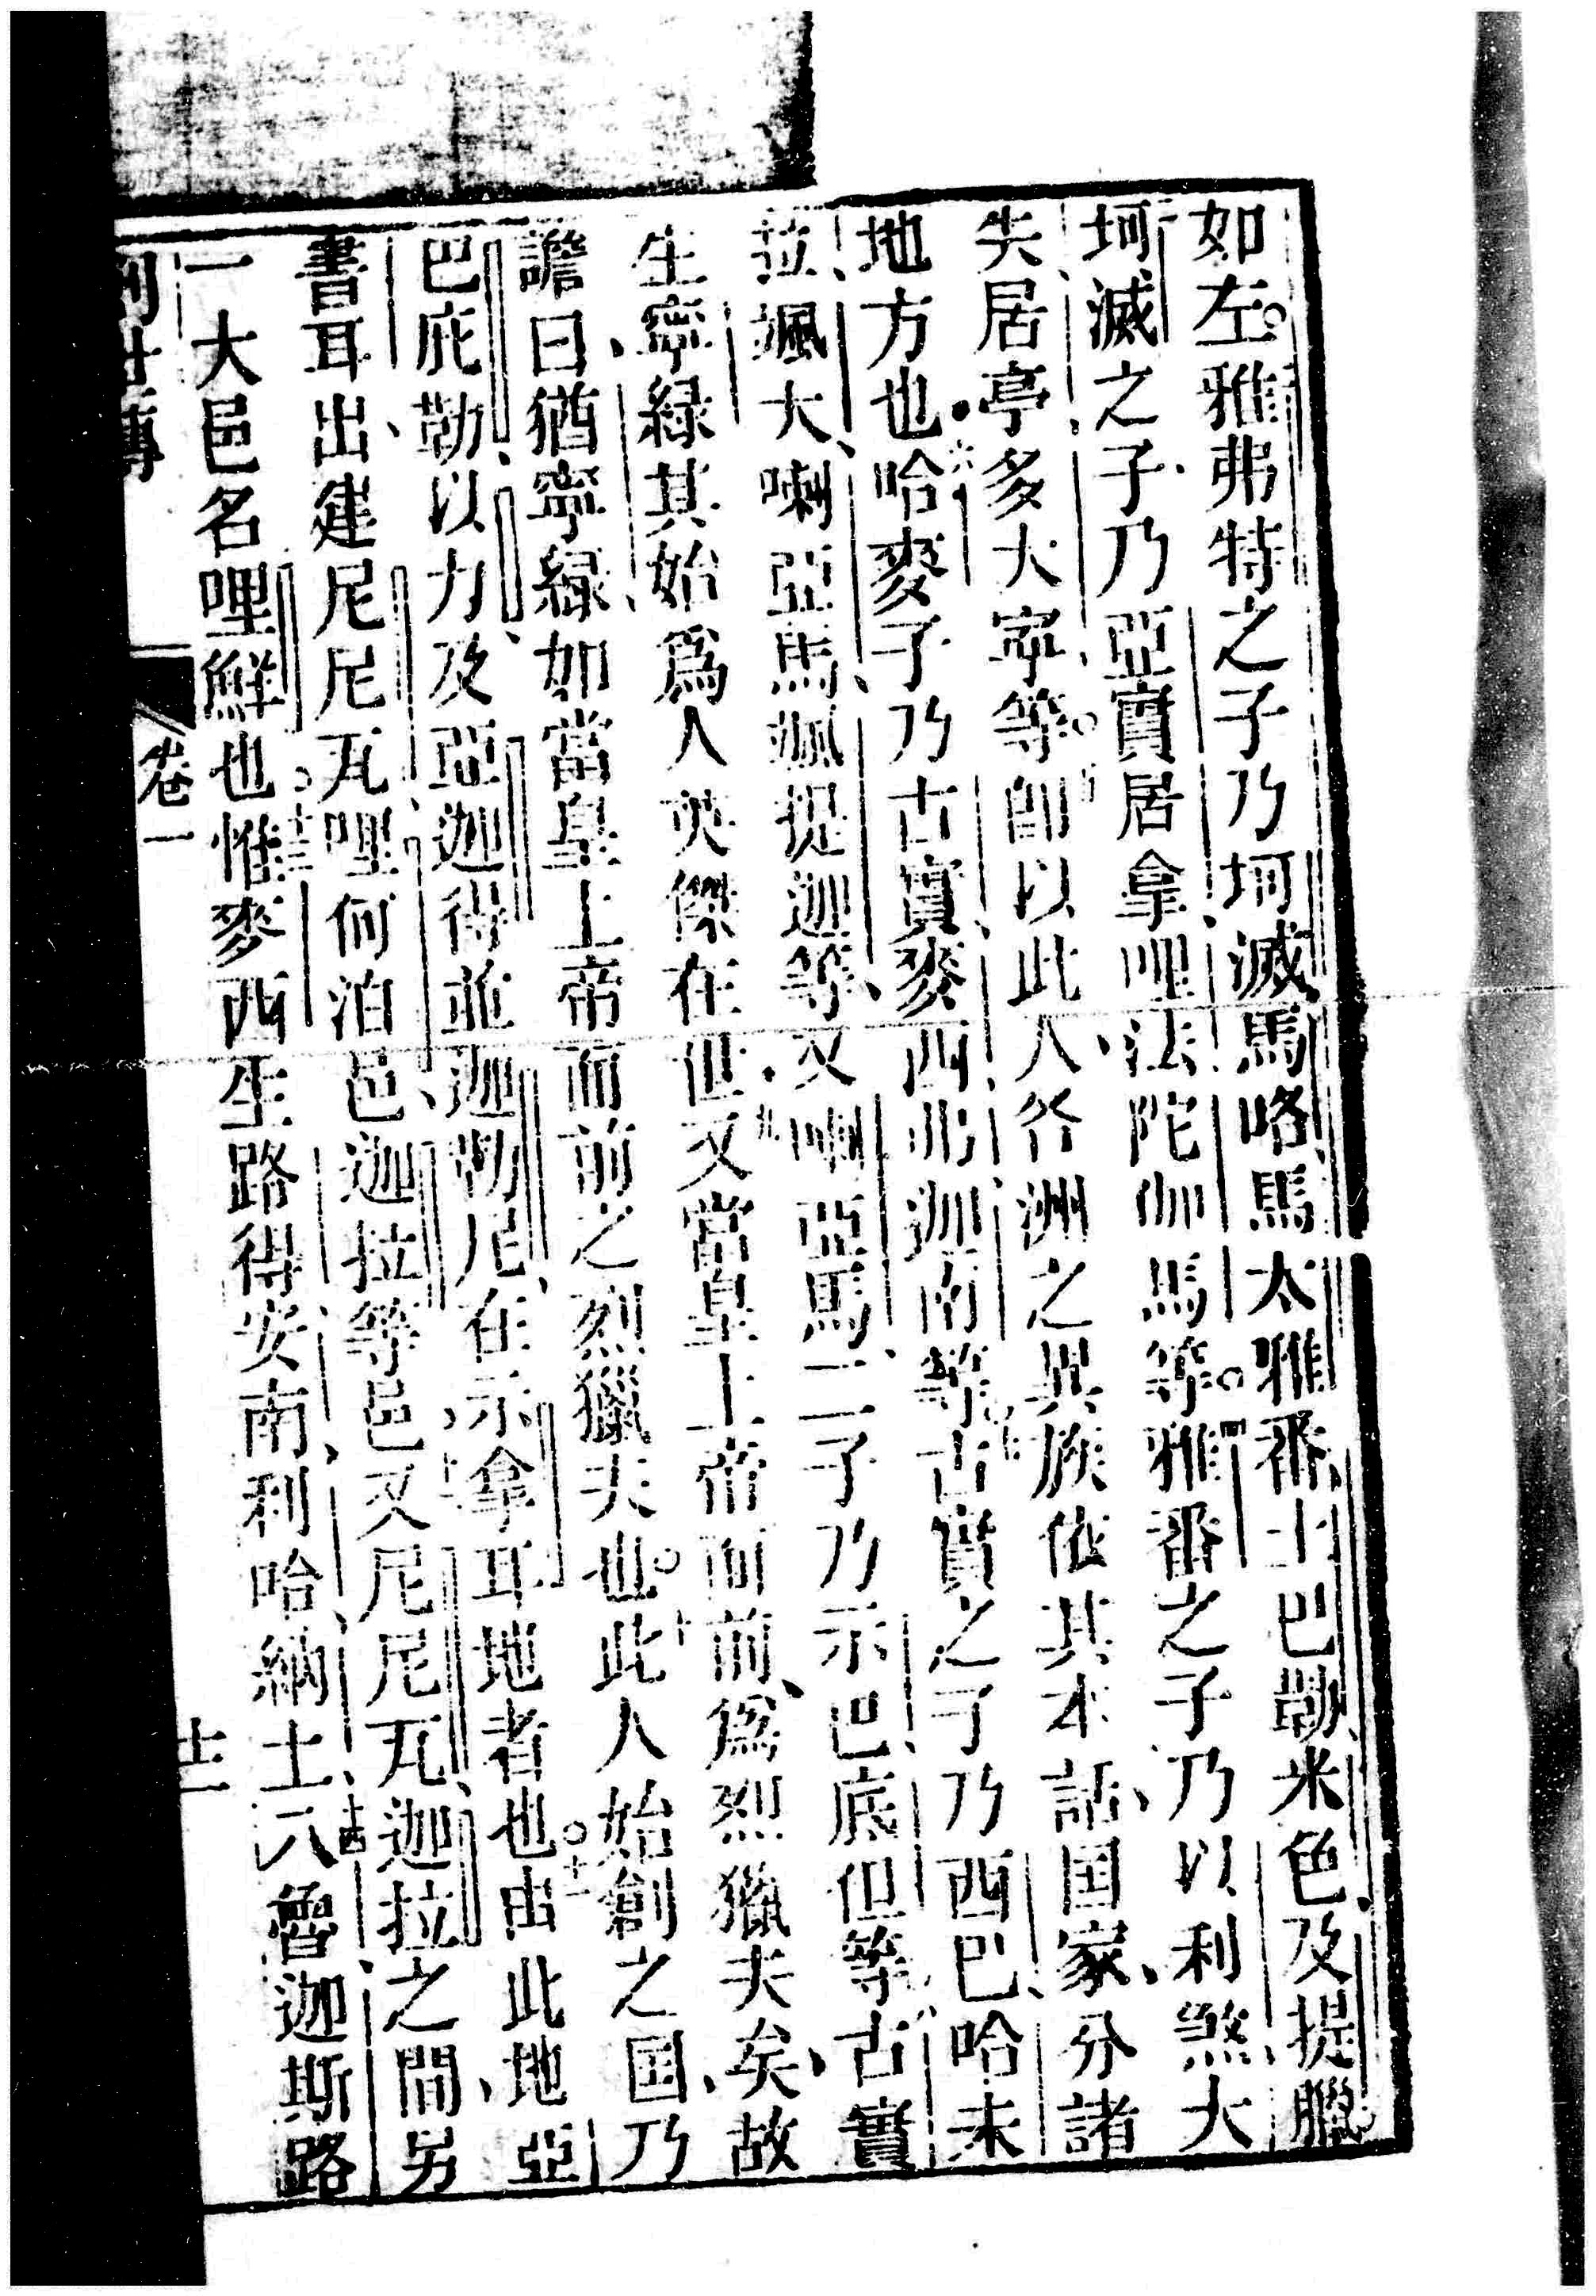 如左雅弗特之子乃坷滅馬咯馬太雅番土巴勒米色及提臘
坷滅之子乃亞實居拿哩法陀伽馬等四雅番之子乃以利煞大
失居亭多大寧等即以此人各洲之異族依其本話国家分諸
地方也六哈麥子乃古實麥西非洳南等七古實之子乃西巴哈未
拉颯大喇亞馬颯提迦等又喇亞馬二子乃示巴底但等古實
生寧綠其始爲人英傑在世九又當皇上帝面前爲烈獵夫矣故
譫曰猶寧綠如當皇上帝面前之烈獵夫也十此人始創之国乃
巴庇勒以力及亞迦得並迦勒尼在示拿耳地者也十一由此地亞
書耳出建尼尼瓦哩何泊邑迦拉等邑又尼尼瓦迦拉之間另
一大邑名哩鮮也十三惟麥西生路得安南利哈納土八魯迦斯路
卷一